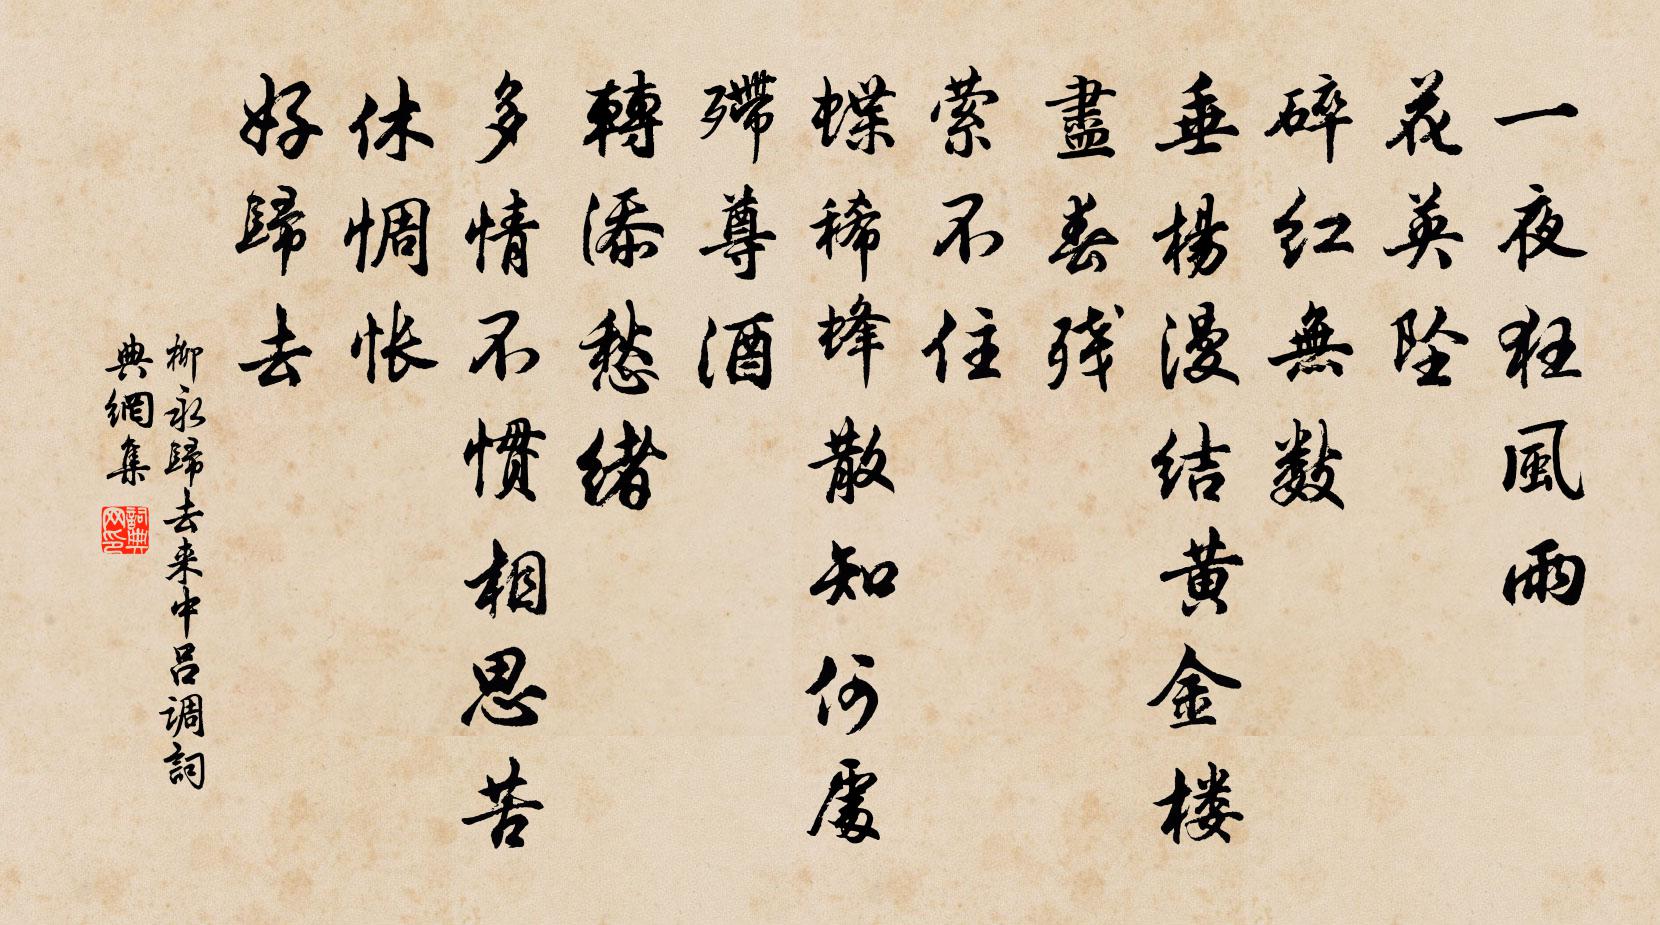 一夜狂風雨
花英坠
碎红無數
垂楊漫结黄金楼
盡春残
萦不住
蝶稀蜂散知何處
殢尊酒
轉添愁绪
多情不慣相思苦
休惆怅
好歸去
柳永歸去来中吕调詞
典網集
詞典网印